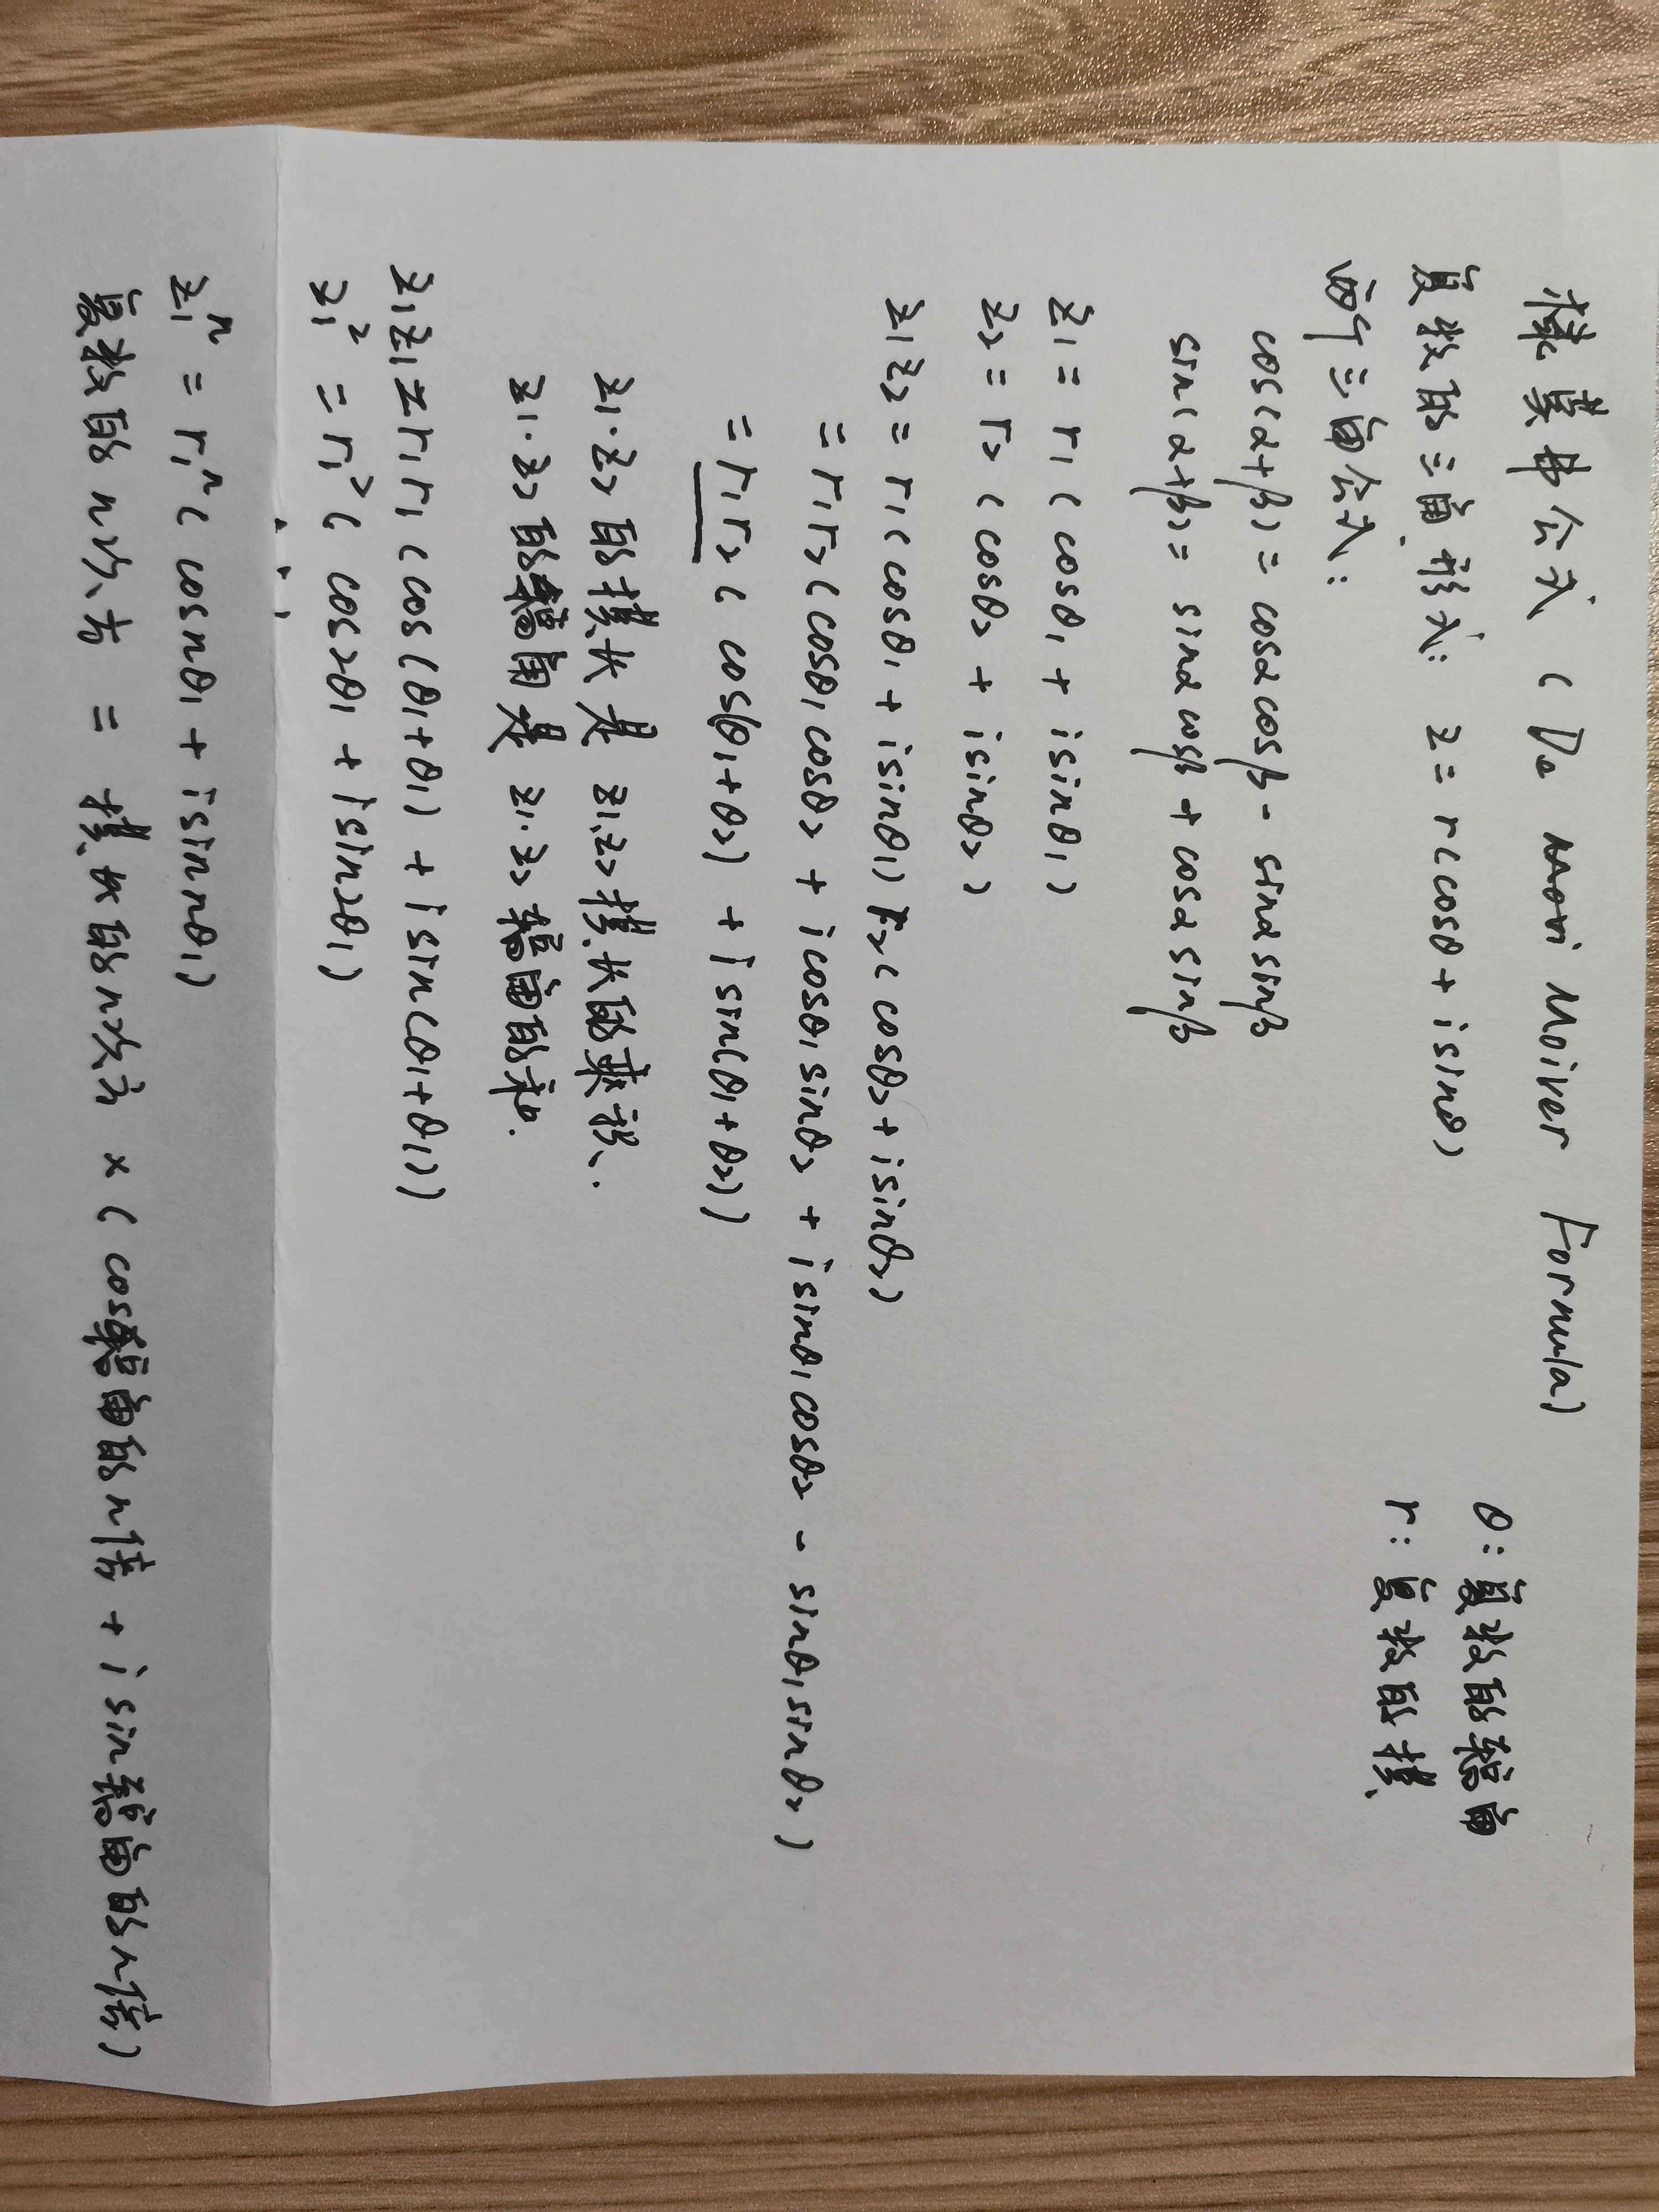 棣莫弗公式 (De Moiver Formula)
θ: 复数的辐角
复数的三角形式: z = r(cosθ + isinθ)
r: 复数的模
两个三角公式:
cos(α+β) = cosαcosβ - sinαsinβ
sin(α+β) = sinαcosβ + cosαsinβ
z₁ = r₁(cosθ₁ + isinθ₁)
z₂ = r₂(cosθ₂ + isinθ₂)
z₁z₂ = r₁(cosθ₁ + isinθ₁) r₂(cosθ₂ + isinθ₂)
= r₁r₂(cosθ₁cosθ₂ + icosθ₁sinθ₂ + isinθ₁cosθ₂ - sinθ₁sinθ₂)
= r₁r₂(cos(θ₁+θ₂) + isin(θ₁+θ₂))
z₁·z₂的模长是 z₁,z₂模长的乘积.
z₁·z₂的辐角是 z₁·z₂辐角的和.
z₁z₁ = r₁r₁(cos(θ₁+θ₁) + isin(θ₁+θ₁))
z₁² = r₁²(cos2θ₁ + isin2θ₁)
z₁ⁿ = r₁ⁿ(cosnθ₁ + isinnθ₁)
复数的n次方 = 模长的n次方 × (cos辐角的n倍 + isin辐角的n倍)